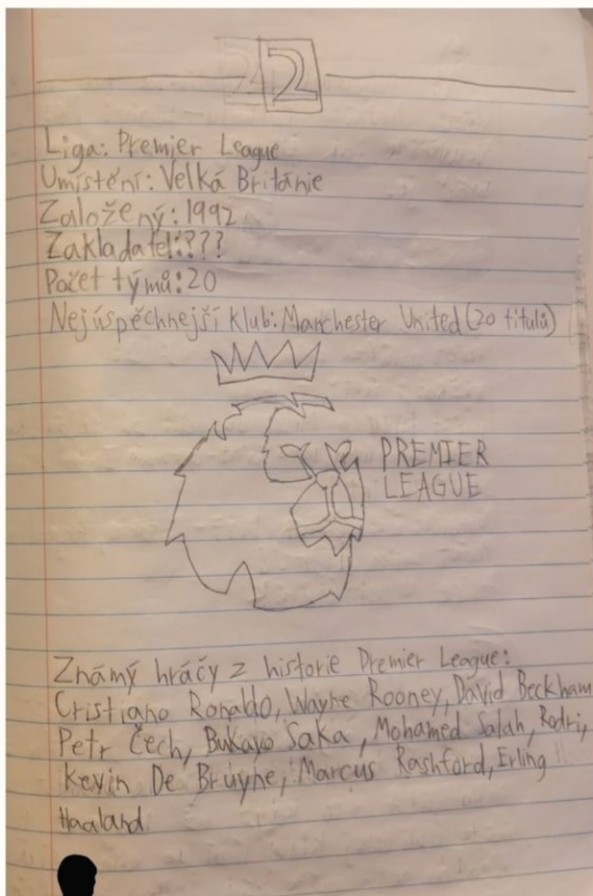 22
Liga: Premier League
Umístění: Velká Británie
Založený: 1992
Zakladatel:???
Počet týmů: 20
Nejúspěchnejší klub: Manchester United (20 titulů)
PREMIER
LEAGUE
Známý hráčy z historie Premier League:
Cristiano Ronaldo, Wayne Rooney, David Beckham
Petr Čech, Bukayo Saka, Mohamed Salah, Rodri,
Kevin De Brúyne, Marcus Rashford, Erling
Haaland